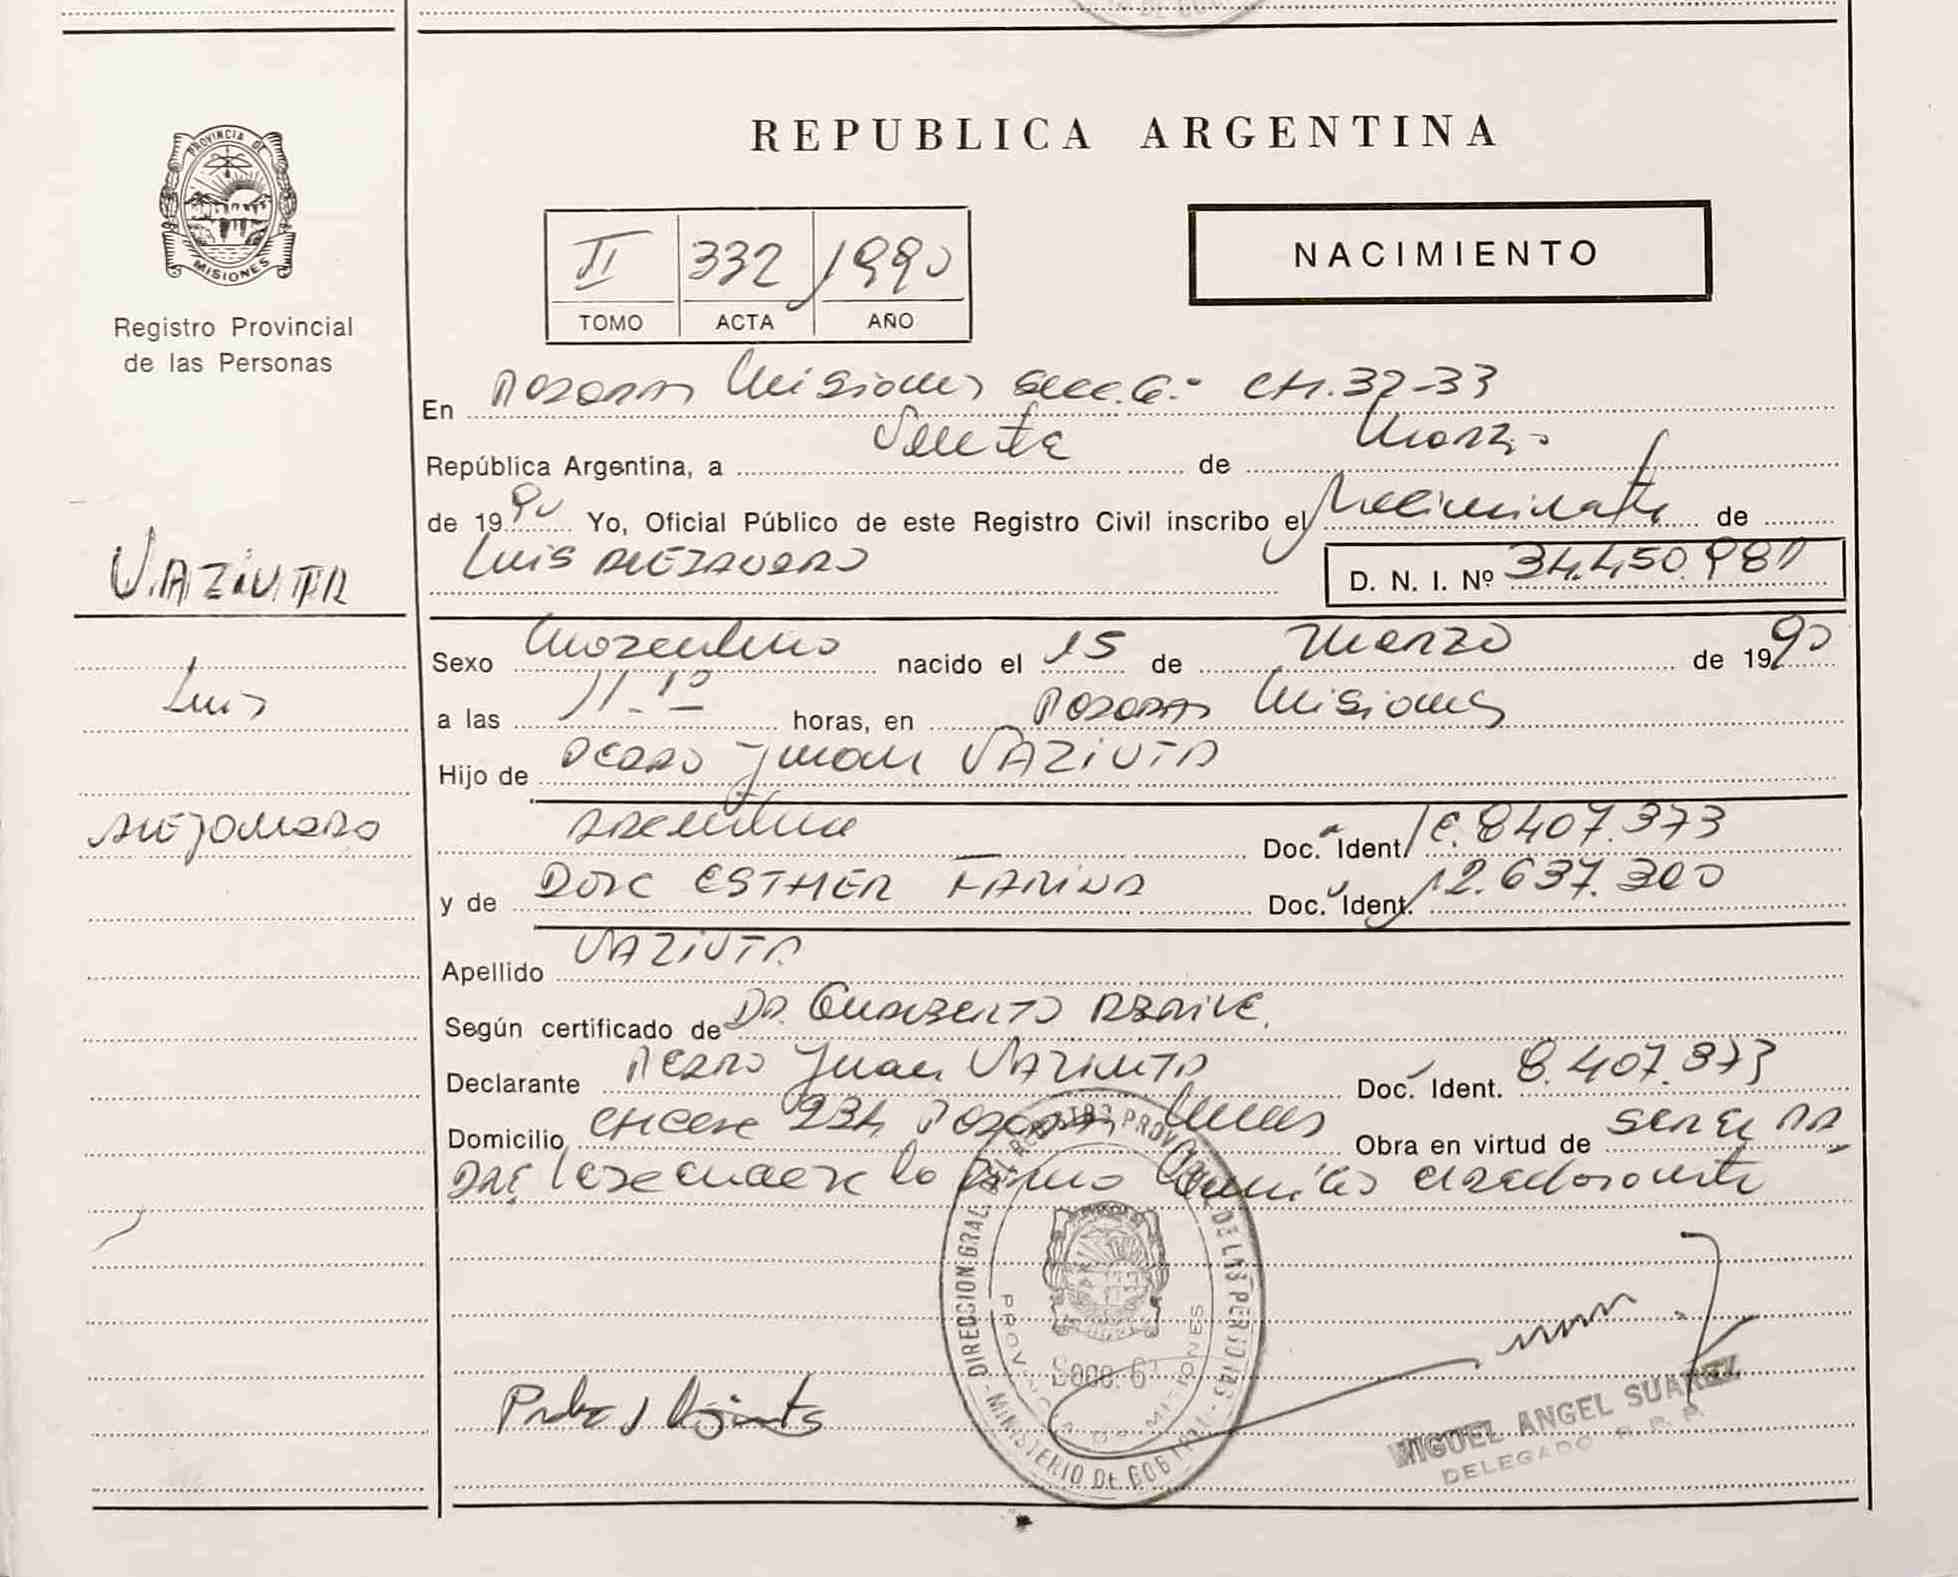 PROVINCIA DE
MISIONES
Registro Provincial
de las Personas
VAZIUTA
Luis
ALEJANDRO
REPUBLICA ARGENTINA
II 332 1990
TOMO ACTA AÑO
NACIMIENTO
En POSADAS Misiones Secc. 6ª CH. 32-33
República Argentina, a Veinte de Marzo
de 1990 Yo, Oficial Público de este Registro Civil inscribo el Nacimiento de
LUIS ALEJANDRO D. N. I. Nº 34.450.981
Sexo Masculino nacido el 15 de Marzo de 1990
a las 11.10 horas, en POSADAS Misiones
Hijo de PEDRO Juan VAZIUTA
Argentina Doc. Ident. 8407.373
y de ESTHER FARINA Doc. Ident. 12.637.300
Apellido VAZIUTA
Según certificado de DR.
Declarante PEDRO Juan VAZIUTA Doc. Ident. 8.407.373
Domicilio POSADAS Obra en virtud de SER EL PA
DRE lo
DIRECCION GRAL. DEL REGISTRO PROVINCIAL DE LAS PERSONAS - MINISTERIO DE GOBIERNO -
PROVINCIA DE MISIONES
MIGUEL ANGEL SUAREZ
DELEGADO R. P. P.